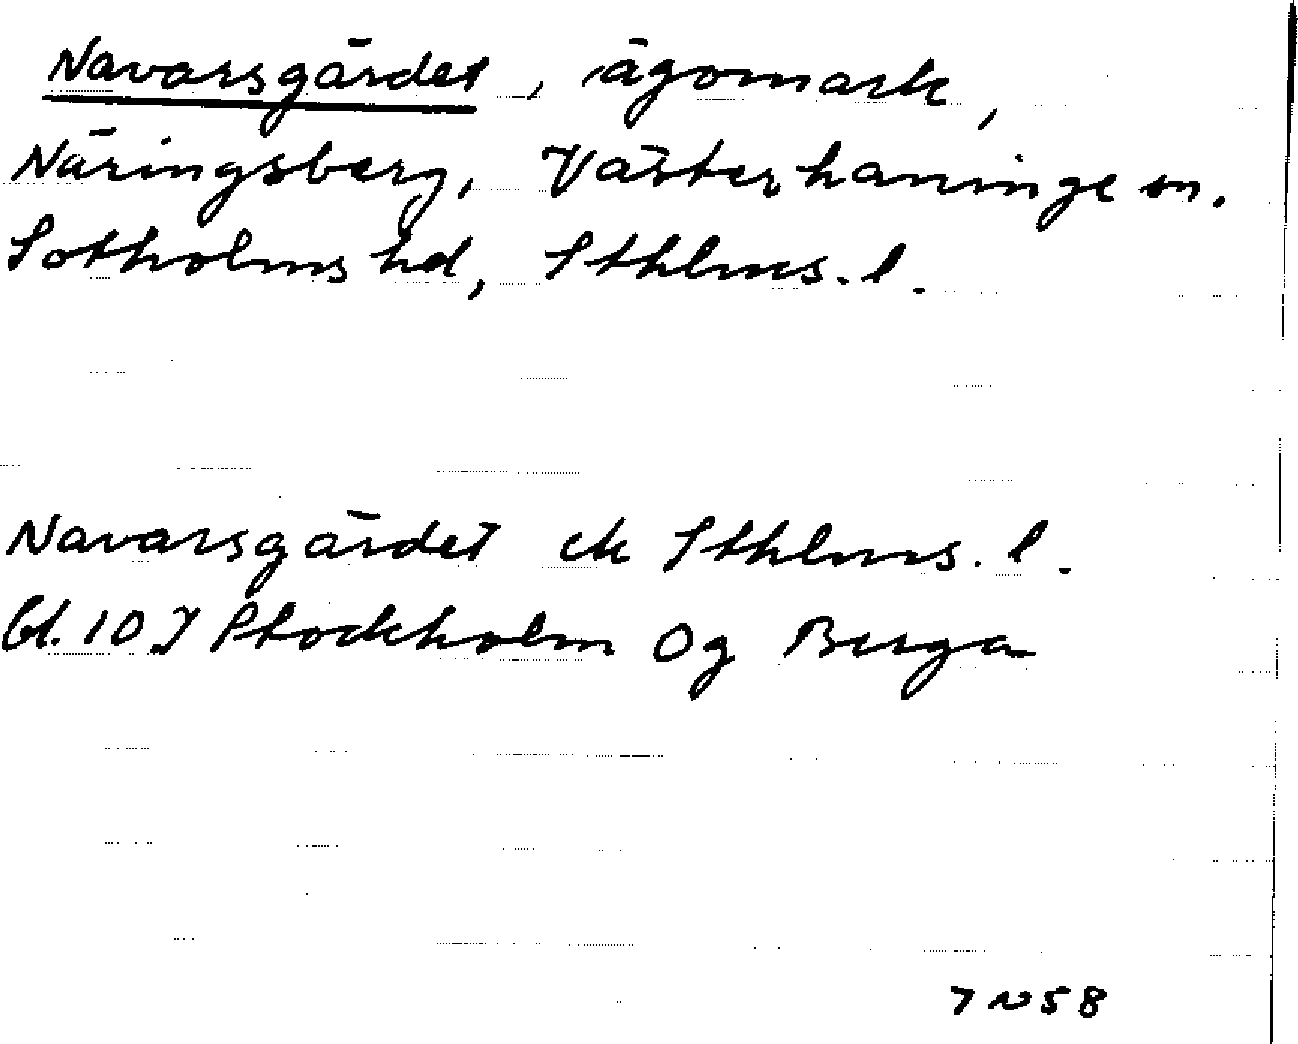 Navarsgärdet, ägomark,
Näringsberg, Västerhaninge sn.
Sotholms hd, Sthlms. l.
Navarsgärdet ek Sthlms. l.
bl. 10 I Stockholm Og Berga
7 N 58